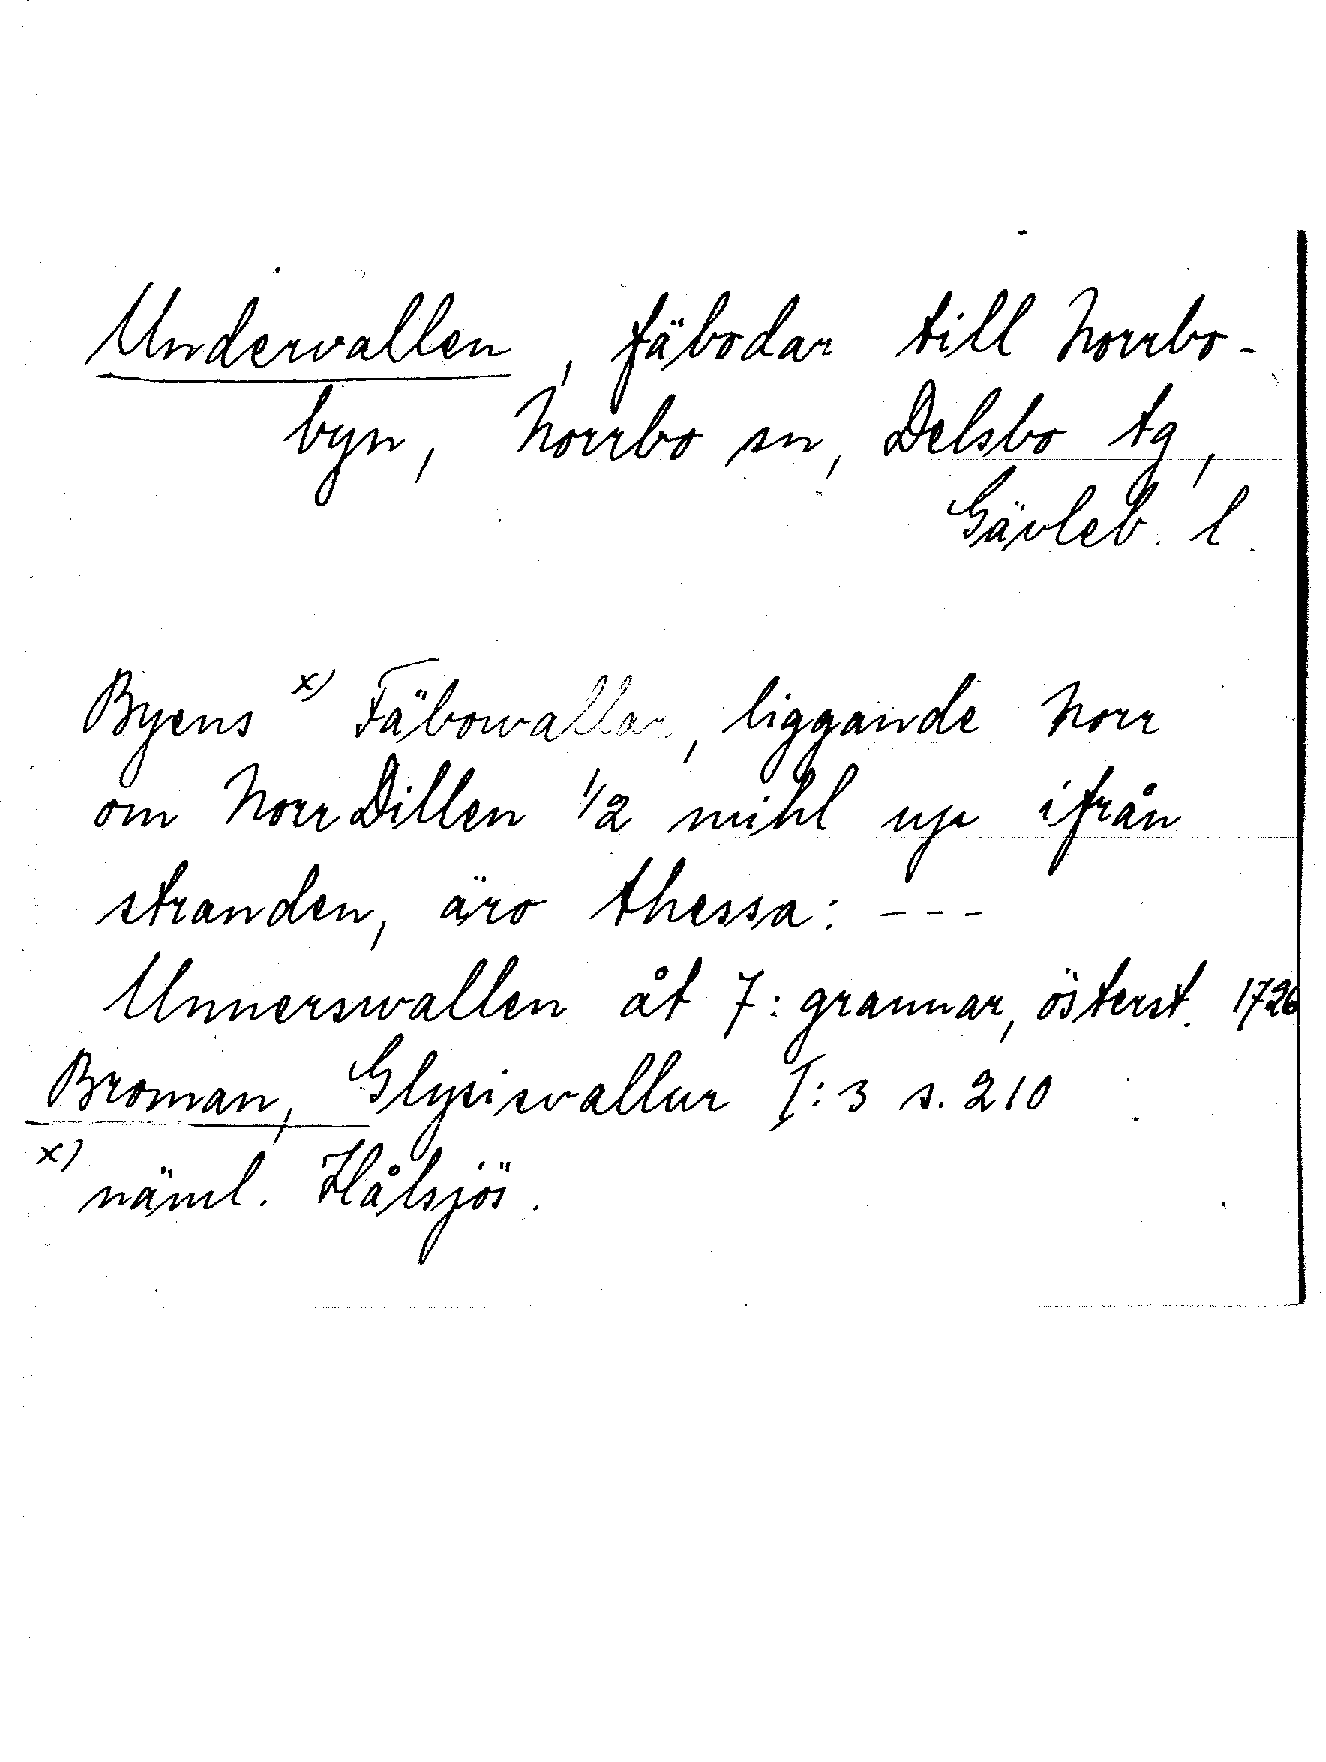 Undervallen, fäbodar till Norrbo-
byn, Norrbo sn, Delsbo tg,
Gävleb. l.
Byens x) Fäbowallar, liggande Norr
om Norr Dillen 1/2 mihl up ifrån
stranden, äro thessa: ---
Unnerswallen åt 7: grannar, österst. 1726
Broman, Glysisvallur I:3 s. 210
x) näml. Hålsjös.